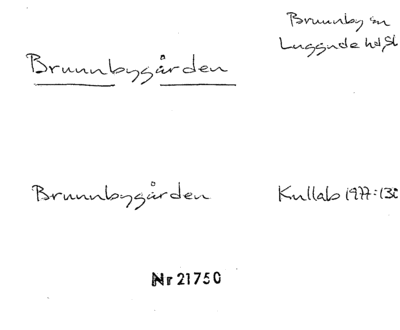 Brunnby sn
Luggude hd, Sk
Brunnbygården
Brunnbygården
Kullab 1977:
Nr 21750